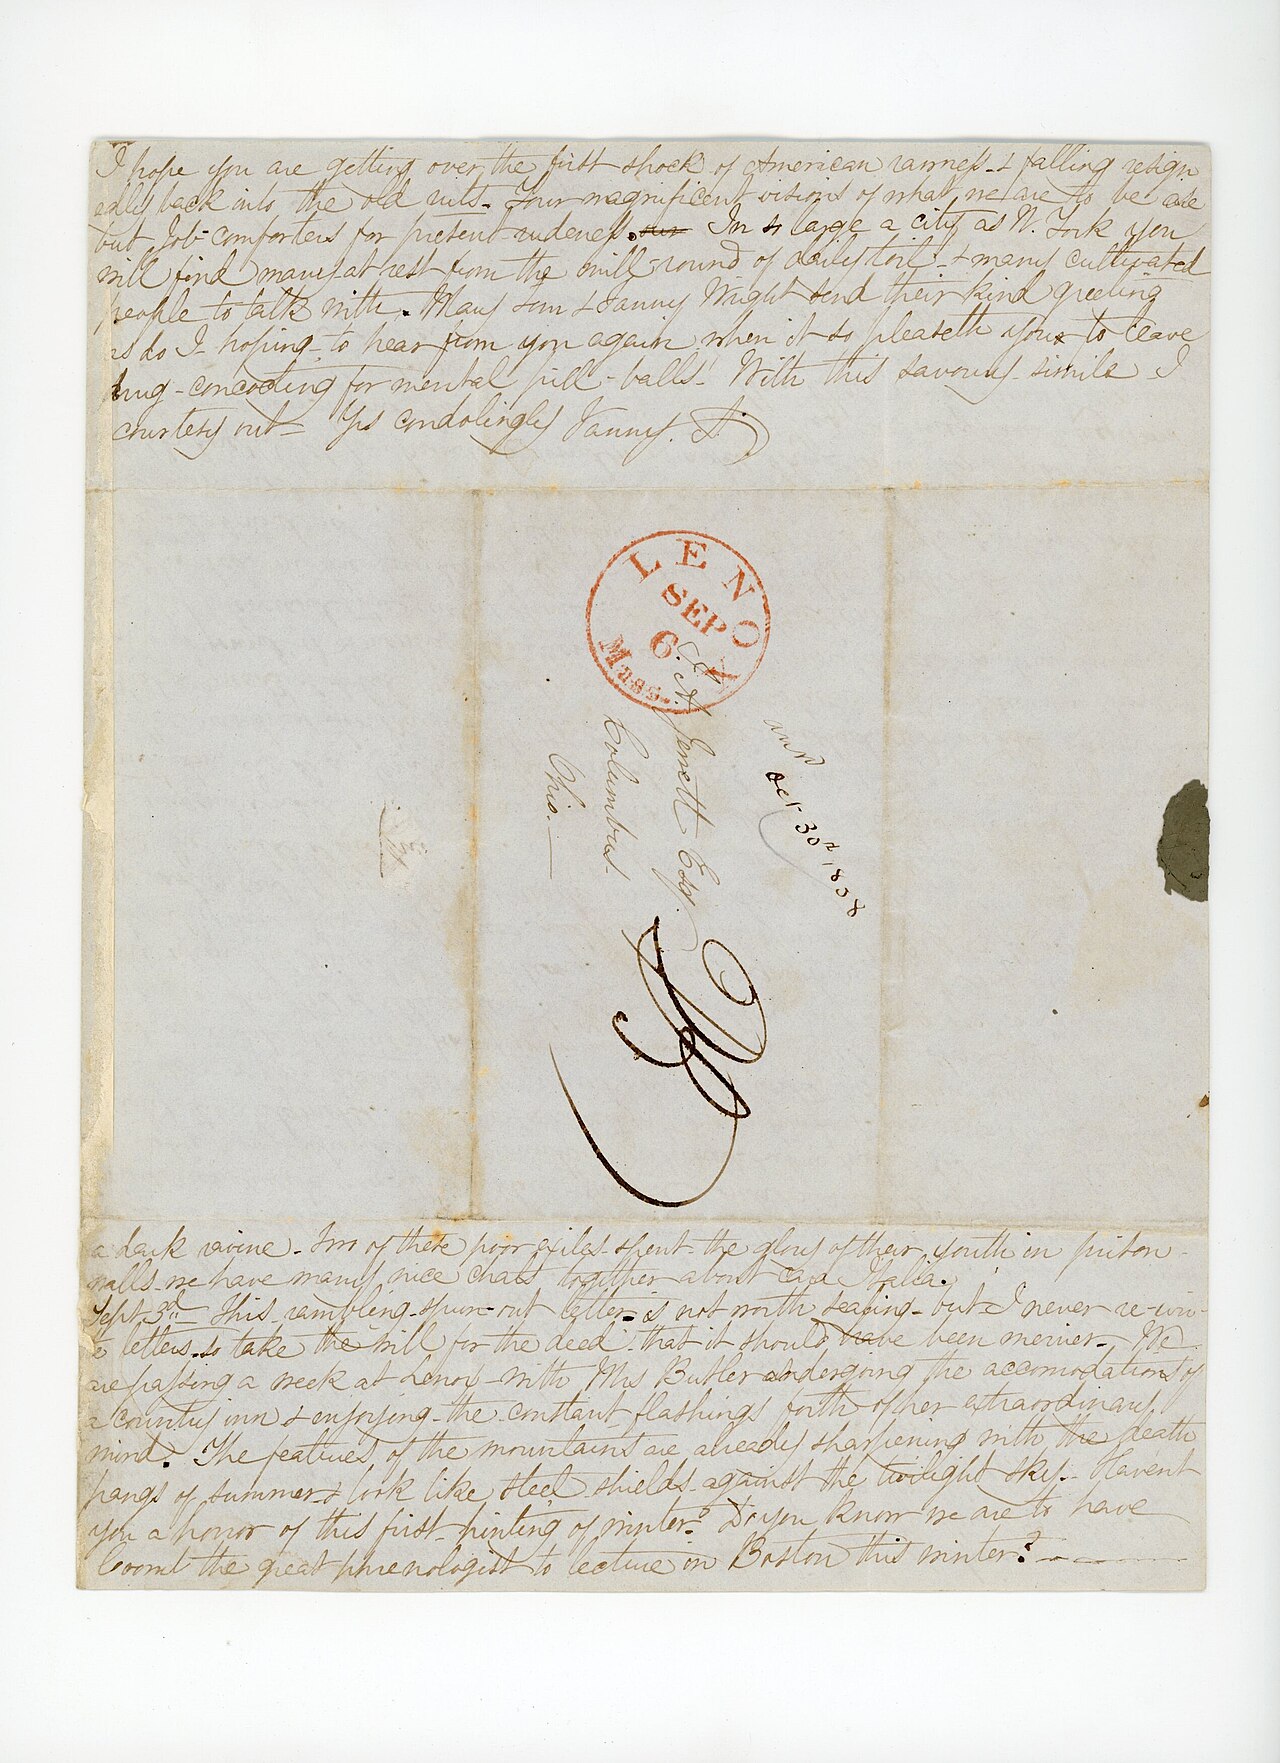 I hope you are getting over the first shock of American rawness & falling resign
edly back into the old ruts. Your magnificent visions of what we are to be are
but Job-comforters for present rudeness. In so large a city as N. York you
will find many at rest from the mill-round of daily toil & many cultivated
people to talk with. Mary & Fanny Wright send their kind greeting
as do I hoping to hear from you again when it so pleaseth you to leave
drug-concocting for mental pill-balls! With this savoury simile I
courtesy out Yrs condolingly Fanny. A
LENOX
SEP
6
Mass.
Jewett Esq.
Columbus.
Ohio.
Oct 30th 1838
a dark ravine. Two of these poor exiles spent the glory of their youth in prison
walls we have many nice chats together about cara Italia.
Sept 3rd This rambling spun-out letter is not worth seaying but I never re-wri
te letters so take the will for the deed that it should have been merrier. We
are passing a week at Lenox with Mrs Butler undergoing the accomodations of
a country inn & enjoying the constant flashings forth of her extraordinary
mind. The features of the mountains are already sharpening with the death
pangs of summer & look like steel shields against the twilight sky. Havent
you a horror of this first hinting of winter? Do you know we are to have
Coomb the great phrenologist to lecture in Boston this winter?